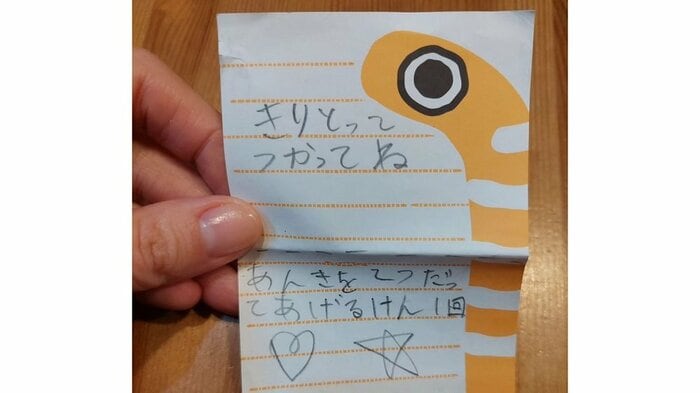 きりとって
つかってね
あんきをてつだっ
てあげるけん1回